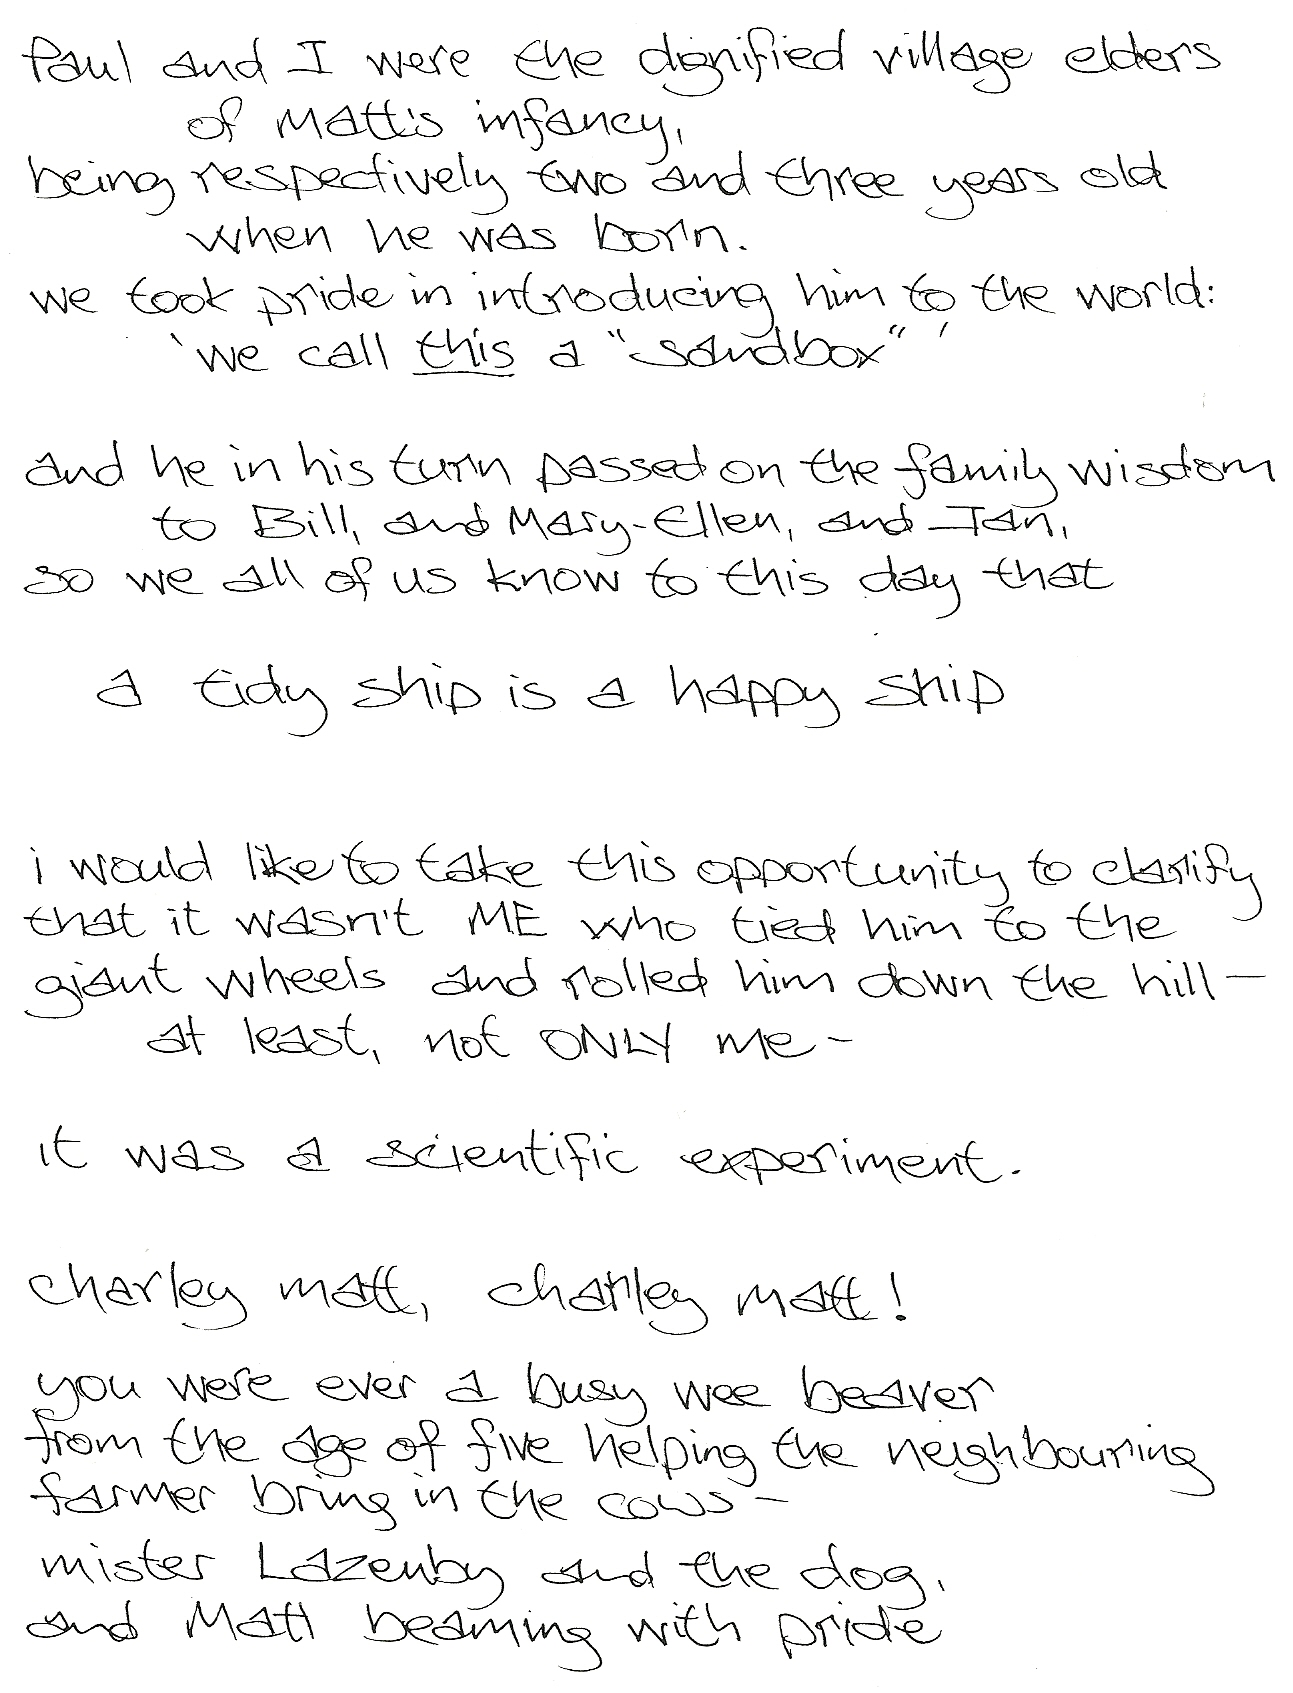 Paul and I were the dignified village elders
of Matt's infancy,
being respectively two and three years old
when he was born.
we took pride in introducing him to the world:
'we call this a "sandbox" '
and he in his turn passed on the family wisdom
to Bill, and Mary-Ellen, and Ian,
so we all of us know to this day that
a tidy ship is a happy ship
i would like to take this opportunity to clarify
that it wasn't ME who tied him to the
giant wheels and rolled him down the hill —
at least, not ONLY me -
it was a scientific experiment.
charley matt, charley matt!
you were ever a busy wee beaver
from the age of five helping the neighbouring
farmer bring in the cows -
mister Lazenby and the dog,
and Matt beaming with pride